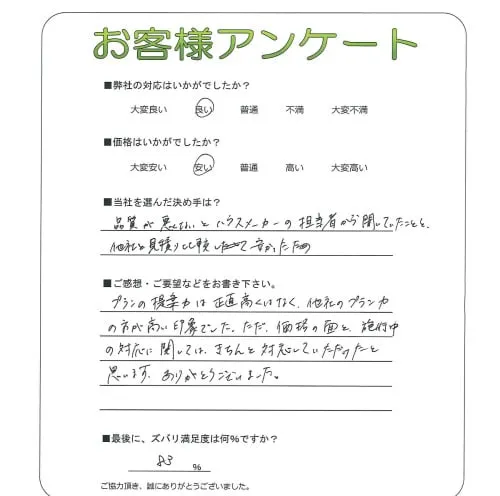 お客様アンケート
■弊社の対応はいかがでしたか?
大変良い 良い 普通 不満 大変不満
■価格はいかがでしたか?
大変安い 安い 普通 高い 大変高い
■当社を選んだ決め手は?
品質が悪くないとハウスメーカーの担当者から聞いていたことと、
他社と見積り比較して安かったため
■ご感想・ご要望などをお書き下さい。
プランの提案力は正直高くはなく、他社のプラン力
の方が高い印象でした。ただ、価格の面と、施行中
の対応に関しては、きちんと対応していただけたと
思います。ありがとうございました。
■最後に、ズバリ満足度は何%ですか?
%
ご協力頂き、誠にありがとうございました。